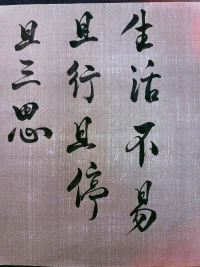 生活不易
且行且停
且三思